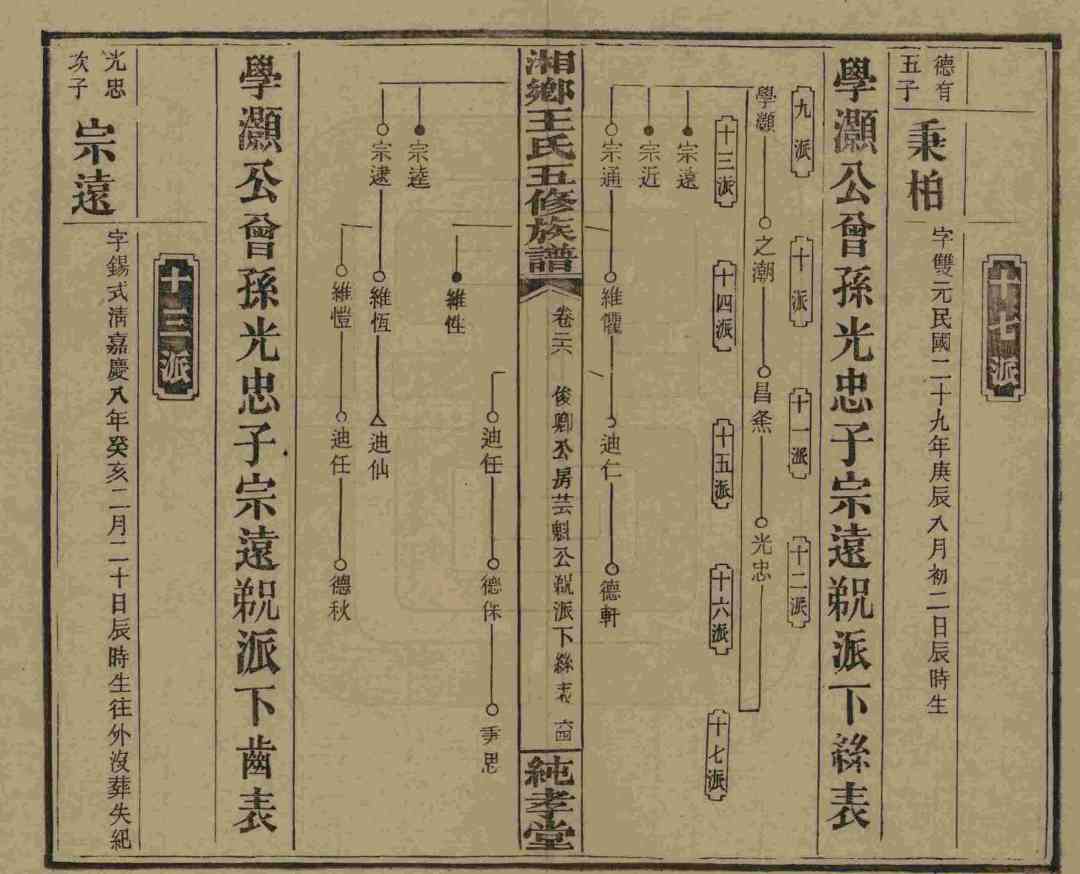 十七派
德有
五子
秉柏
字雙元民國二十九年庚辰八月初二日辰時生
學灝公曾孫光忠子宗遠覜派下絲表
九派
十派
十一派
十二派
學灝
之潮
光忠
十三派
十四派
十五派
十六派
十七派
宗遠
宗近
宗通
維懼
迪仁
德軒
湘鄉王氏五修族譜
卷二六
俊卿公房芸魁公覜派下絲表
純孝堂
迪任
維性
宗逵
宗逮
維恆
迪仙
維愷
迪任
德秋
學灝公曾孫光忠子宗遠覜派下齒表
十三派
光忠
次子
宗遠
字錫式淸嘉慶八年癸亥二月二十日辰時生往外沒葬失紀